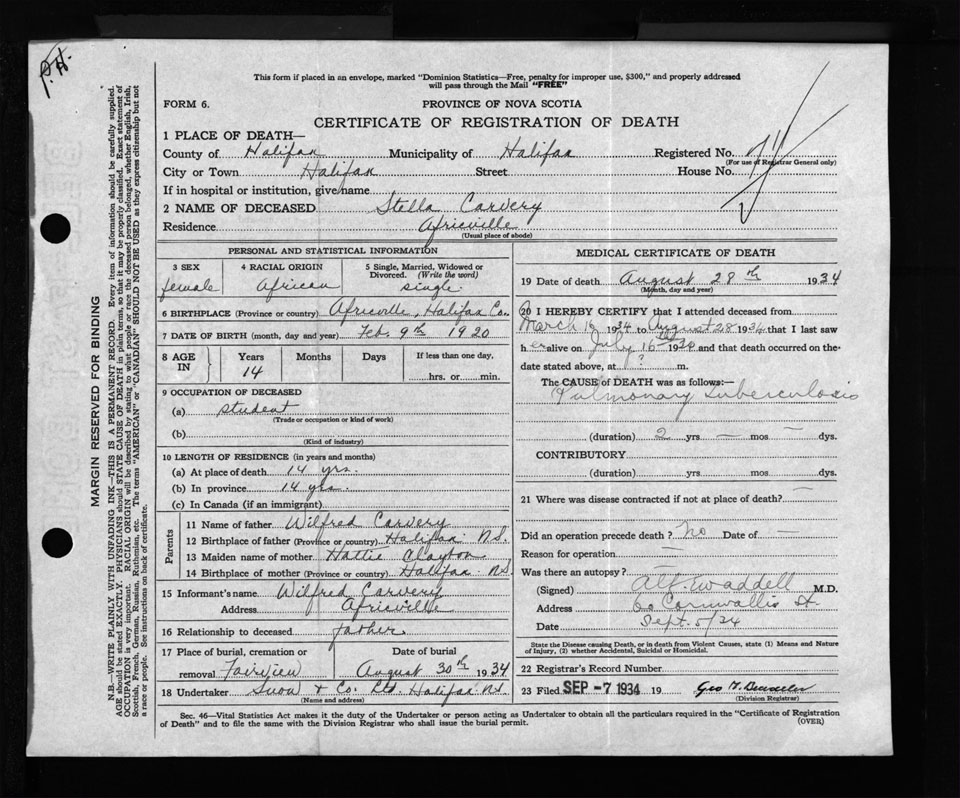 P.H.
This form if placed in an envelope, marked "Dominion Statistics—Free, penalty for improper use, $300," and properly addressed
will pass through the Mail "FREE"
FORM 6.
PROVINCE OF NOVA SCOTIA
CERTIFICATE OF REGISTRATION OF DEATH
1 PLACE OF DEATH—
County of Halifax Municipality of Halifax Registered No.
(For use of Registrar General only)
City or Town Halifax Street House No.
If in hospital or institution, give name
2 NAME OF DECEASED Stella Carvery
Residence Africville
(Usual place of abode)
PERSONAL AND STATISTICAL INFORMATION
3 SEX
female
4 RACIAL ORIGIN
African
5 Single, Married, Widowed or
Divorced. (Write the word)
single
6 BIRTHPLACE (Province or country) Africville, Halifax Co.
7 DATE OF BIRTH (month, day and year) Feb. 9th 1920
8 AGE
IN
Years
14
Months
Days
If less than one day,
hrs. or min.
9 OCCUPATION OF DECEASED
(a) student
(Trade or occupation or kind of work)
(b)
(Kind of industry)
10 LENGTH OF RESIDENCE (in years and months)
(a) At place of death 14 yrs.
(b) In province 14 yrs.
(c) In Canada (if an immigrant)
Parents
11 Name of father Wilfred Carvery
12 Birthplace of father (Province or country) Halifax N.S.
13 Maiden name of mother Hattie Clayton
14 Birthplace of mother (Province or country) Halifax N.S.
15 Informant's name Wilfred Carvery
Address Africville
16 Relationship to deceased father
17 Place of burial, cremation or
removal Fairview
Date of burial
August 30th 1934
18 Undertaker Snow & Co. Ltd. Halifax N.S.
(Name and address)
MEDICAL CERTIFICATE OF DEATH
19 Date of death August 28th 1934
(Month, day and year)
20 I HEREBY CERTIFY that I attended deceased from
March 16 1934 to August 28 1934 that I last saw
her alive on July 16th 1934 and that death occurred on the
date stated above, at ? m.
The CAUSE of DEATH was as follows:—
Pulmonary Tuberculosis
(duration) 2 yrs — mos — dys.
CONTRIBUTORY
(duration) yrs. mos. dys.
21 Where was disease contracted if not at place of death? —
Did an operation precede death? No Date of —
Reason for operation —
Was there an autopsy?
(Signed) Alf. Waddell M.D.
Address 60 Cornwallis St.
Date Sept. 5/34
State the Disease causing Death, or in death from Violent Causes, state (1) Means and Nature
of Injury, (2) whether Accidental, Suicidal or Homicidal.
22 Registrar's Record Number
23 Filed SEP -7 1934 19 Geo M.
(Division Registrar)
Sec. 46—Vital Statistics Act makes it the duty of the Undertaker or person acting as Undertaker to obtain all the particulars required in the "Certificate of Registration
of Death" and to file the same with the Division Registrar who shall issue the burial permit.
(OVER)
MARGIN RESERVED FOR BINDING
N.B.—WRITE PLAINLY WITH UNFADING INK—THIS IS A PERMANENT RECORD. Every item of information should be carefully supplied.
AGE should be stated EXACTLY. PHYSICIANS should STATE CAUSE OF DEATH in plain terms, so that it may be properly classified. Exact statement of
OCCUPATION is very important. RACIAL ORIGIN will be described by stating to what people or race the deceased person belonged, whether English, Irish,
Scottish, French, German, Russian, Ruthenian, etc. The terms "AMERICAN" or "CANADIAN" SHOULD NOT BE USED as they express citizenship but not
a race or people. See instructions on back of certificate.